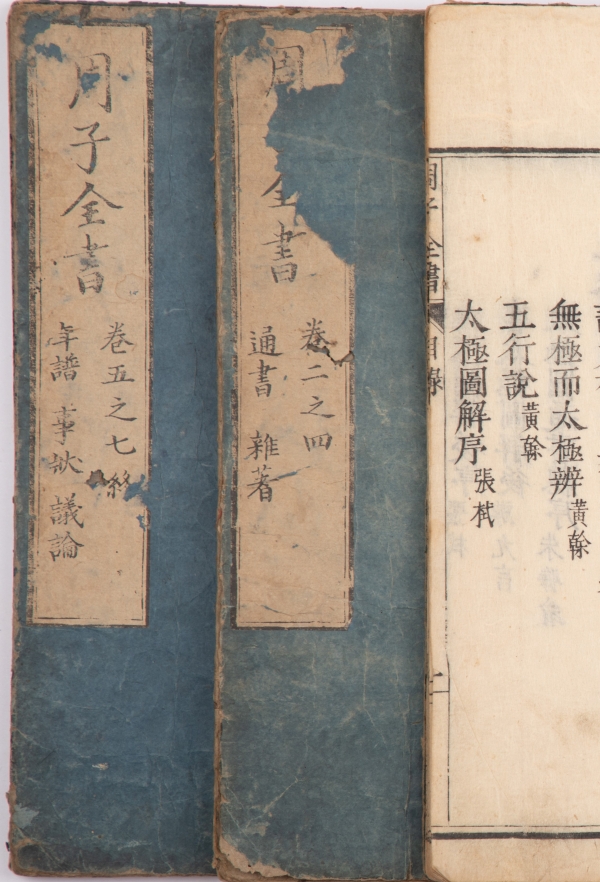 周子全書
卷五之七終
年譜 事狀 議論
周
全書
卷二之四
通書 雜著
無極而太極辨 黃榦
五行說 黃榦
太極圖解序 張栻
目錄